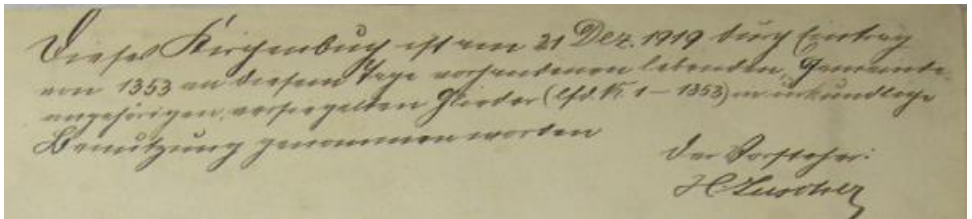 Dieses Kirchenbuch ist am 21 Dez. 1919 durch Eintrag
von 1353 an diesem Tage vorhandenen lebenden, Gemeinde-
angehörigen, versiegelten Glieder (lfd. № 1 – 1353) in urkundliche
Benützung genommen worden
Der Vorsteher: